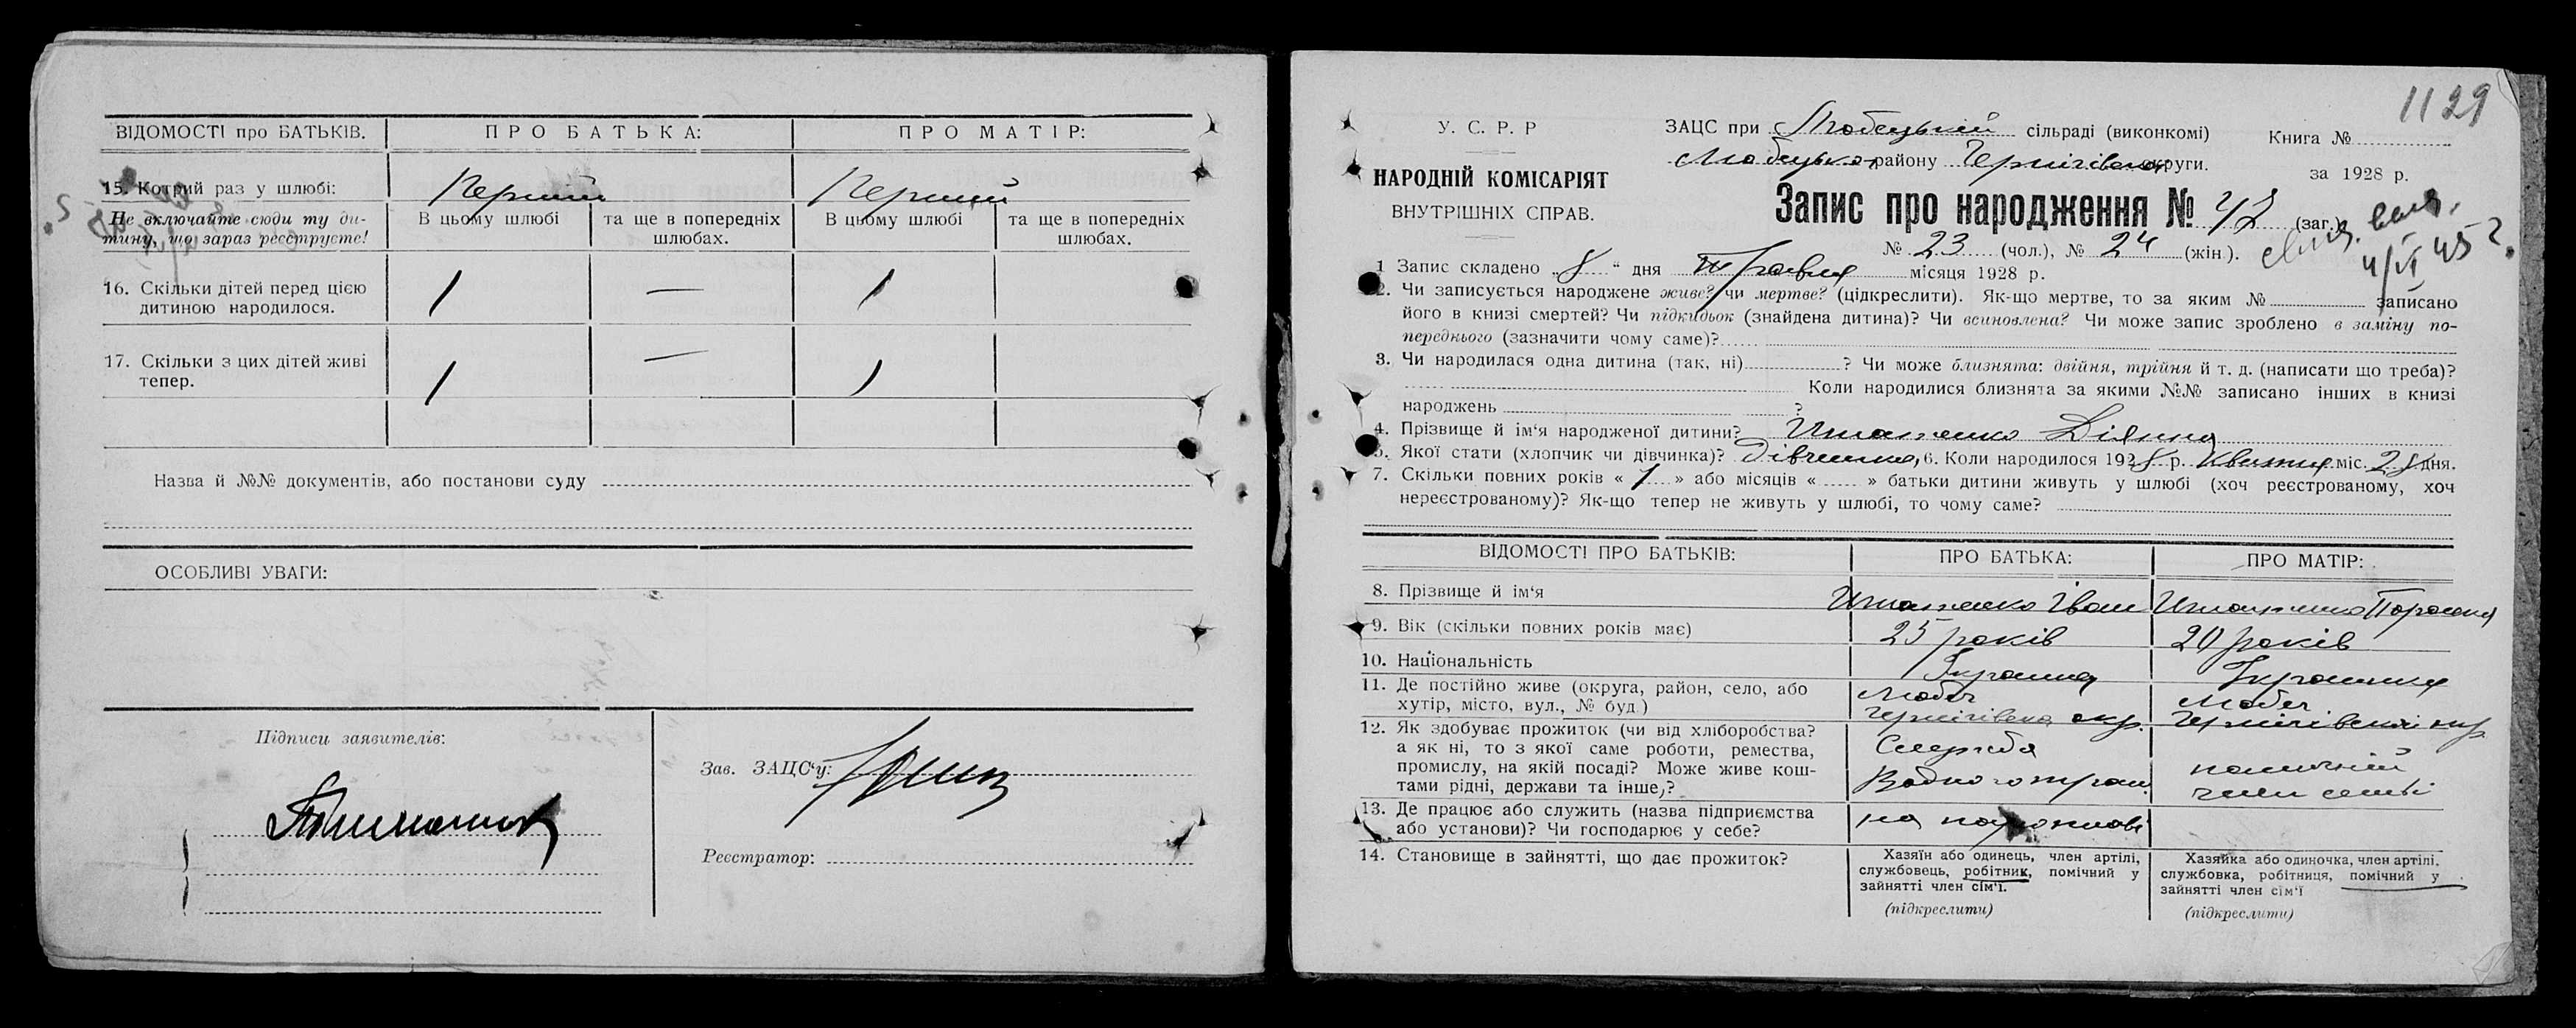 ВІДОМОСТІ про БАТЬКІВ. ПРО БАТЬКА: ПРО МАТІР:
15. Котрий раз у шлюбі: Перший Перший
Не включайте сюди ту ди- В цьому шлюбі та ще в попередніх В цьому шлюбі та ще в попередніх
тину, що зараз реєструєте! шлюбах. шлюбах.
16. Скільки дітей перед цією 1 — 1
дитиною народилося.
17. Скільки з цих дітей живі 1 — 1
тепер.
Назва й №№ документів, або постанови суду
ОСОБЛИВІ УВАГИ:
Підписи заявителів:
Зав. ЗАЦС‘у:
Реєстратор:
1129
У. С. Р. Р ЗАЦС при Любецькій сільраді (виконкомі) Книга №
Любецького району Чернігівської округи.
НАРОДНІЙ КОМІСАРІЯТ за 1928 р.
ВНУТРІШНІХ СПРАВ. Запис про народження № 42 (заг.)
№ 23 (чол.), № 24 (жін).
4/VI 45 г.
1 Запис складено „8“ дня Травня місяця 1928 р.
2. Чи записується народжене живе? чи мертве? (цідкреслити). Як-що мертве, то за яким № записано
його в книзі смертей? Чи підкидьок (знайдена дитина)? Чи всиновлена? Чи може запис зроблено в заміну по-
переднього (зазначити чому саме)?
3. Чи народилася одна дитина (так, ні) ? Чи може близнята: двійня, трійня й т. д. (написати що треба)?
Коли народилися близнята за якими №№ записано інших в книзі
народжень ?
4. Прізвище й ім‘я народженої дитини?
5. Якої стати (хлопчик чи дівчинка)? Дівчинка, 6. Коли народилося 1928 р. Квітня міс. 28 дня.
7. Скільки повних років « 1 » або місяців « » батьки дитини живуть у шлюбі (хоч реєстрованому, хоч
нереєстрованому)? Як-що тепер не живуть у шлюбі, то чому саме?
ВІДОМОСТІ ПРО БАТЬКІВ: ПРО БАТЬКА: ПРО МАТІР:
8. Прізвище й ім‘я Іван
9. Вік (скільки повних років має) 25 років 20 років
10. Національність Українец Українка
11. Де постійно живе (округа, район, село, або Любеч Любеч
хутір, місто, вул., № буд) Чернігівська окр. Чернігівської окр.
12. Як здобуває прожиток (чи від хліборобства?
а як ні, то з якої саме роботи, ремества, Служба
промислу, на якій посаді? Може живе кош- помічний
тами рідні, держави та інше,? Водного тран. член семьі
13. Де працює або служить (назва підприємства на пароплаві
або установи)? Чи господарює у себе?
14. Становище в зайнятті, що дає прожиток? Хазяїн або одинець, член артілі, Хазяйка або одиночка, член артілі,
службовець, робітник, помічний у службовка, робітниця, помічний у
зайнятті член сім‘ї. зайнятті член сім‘ї
(підкреслити) (підкреслити)